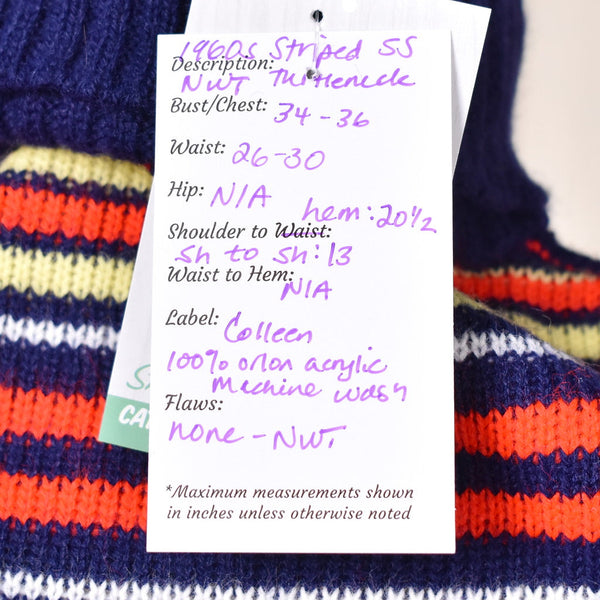 1960s Striped SS
Description:
NWT Turtleneck
Bust/Chest: 34-36
Waist: 26-30
Hip: N/A
hem: 20 1/2
Shoulder to Waist:
Sh to Sh: 13
Waist to Hem:
N/A
Label: Colleen
100% orlon acrylic
Machine wash
Flaws:
none - NWT
*Maximum measurements shown
in inches unless otherwise noted
CA